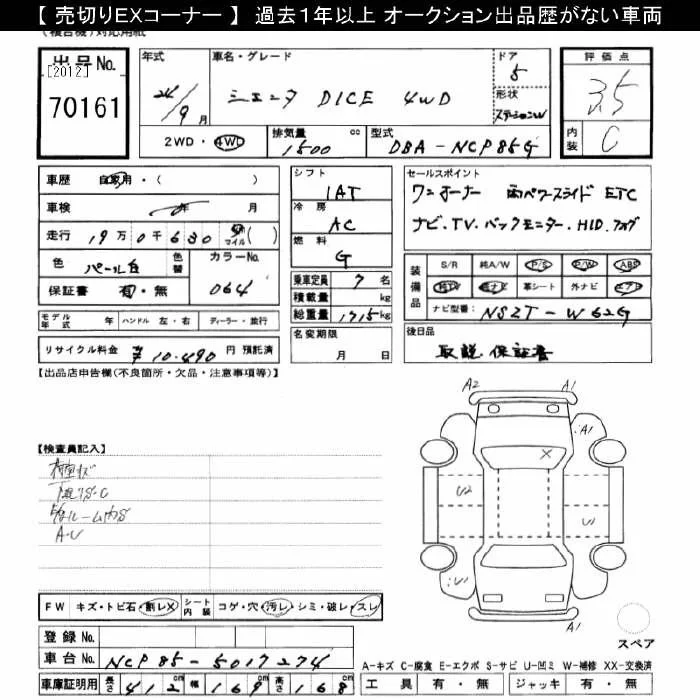 【 売切りEXコーナー 】 過去１年以上 オークション出品歴がない車両
出品No.
[2012]
70161
年式
24/9月
車名・グレード
シエンタ DICE 4WD
ドア
5
形状
ステーションW
評価点
3.5
内装
C
2WD・4WD
排気量
1500 cc
型式
DBA-NCP85G
車歴 自家用・( )
車検 年 月
走行 19万0千630 km マイル ( )
色 パール白
色替
カラーNo.
064
保証書 有・無
モデル年式 年 ハンドル 左・右 ディーラー・並行
リサイクル料金 ￥10.490 円 預託済
シフト
IAT
冷房
AC
燃料
G
乗車定員 7 名
積載量 kg
総重量 1715 kg
名変期限
月 日
セールスポイント
ワンオーナー 両パワースライド ETC
ナビ.TV.バックモニター.HID.フォグ
装備品
S/R 純A/W P/S P/W ABS
純TV 純ナビ 革シート 外ナビ エアB
ナビ型番 NSZT-W62G
後日品
取説.保証書
【出品店申告欄(不良箇所・欠品・注意事項等)】
【検査員記入】
下廻りS.C
A-U
A2
A1
A1
X
U2
U1
U1
A1
FW キズ・トビ石・割レX
シート内装 コゲ・穴・汚レ・シミ・破レ・スレ
登録No.
車台No. NCP85-5017274
車庫証明用 長さ 412 cm 幅 169 cm 高さ 168 cm
スペア
A-キズ C-腐食 E-エクボ S-サビ U-凹ミ W-補修 XX-交換済
工具 有・無 ジャッキ 有・無